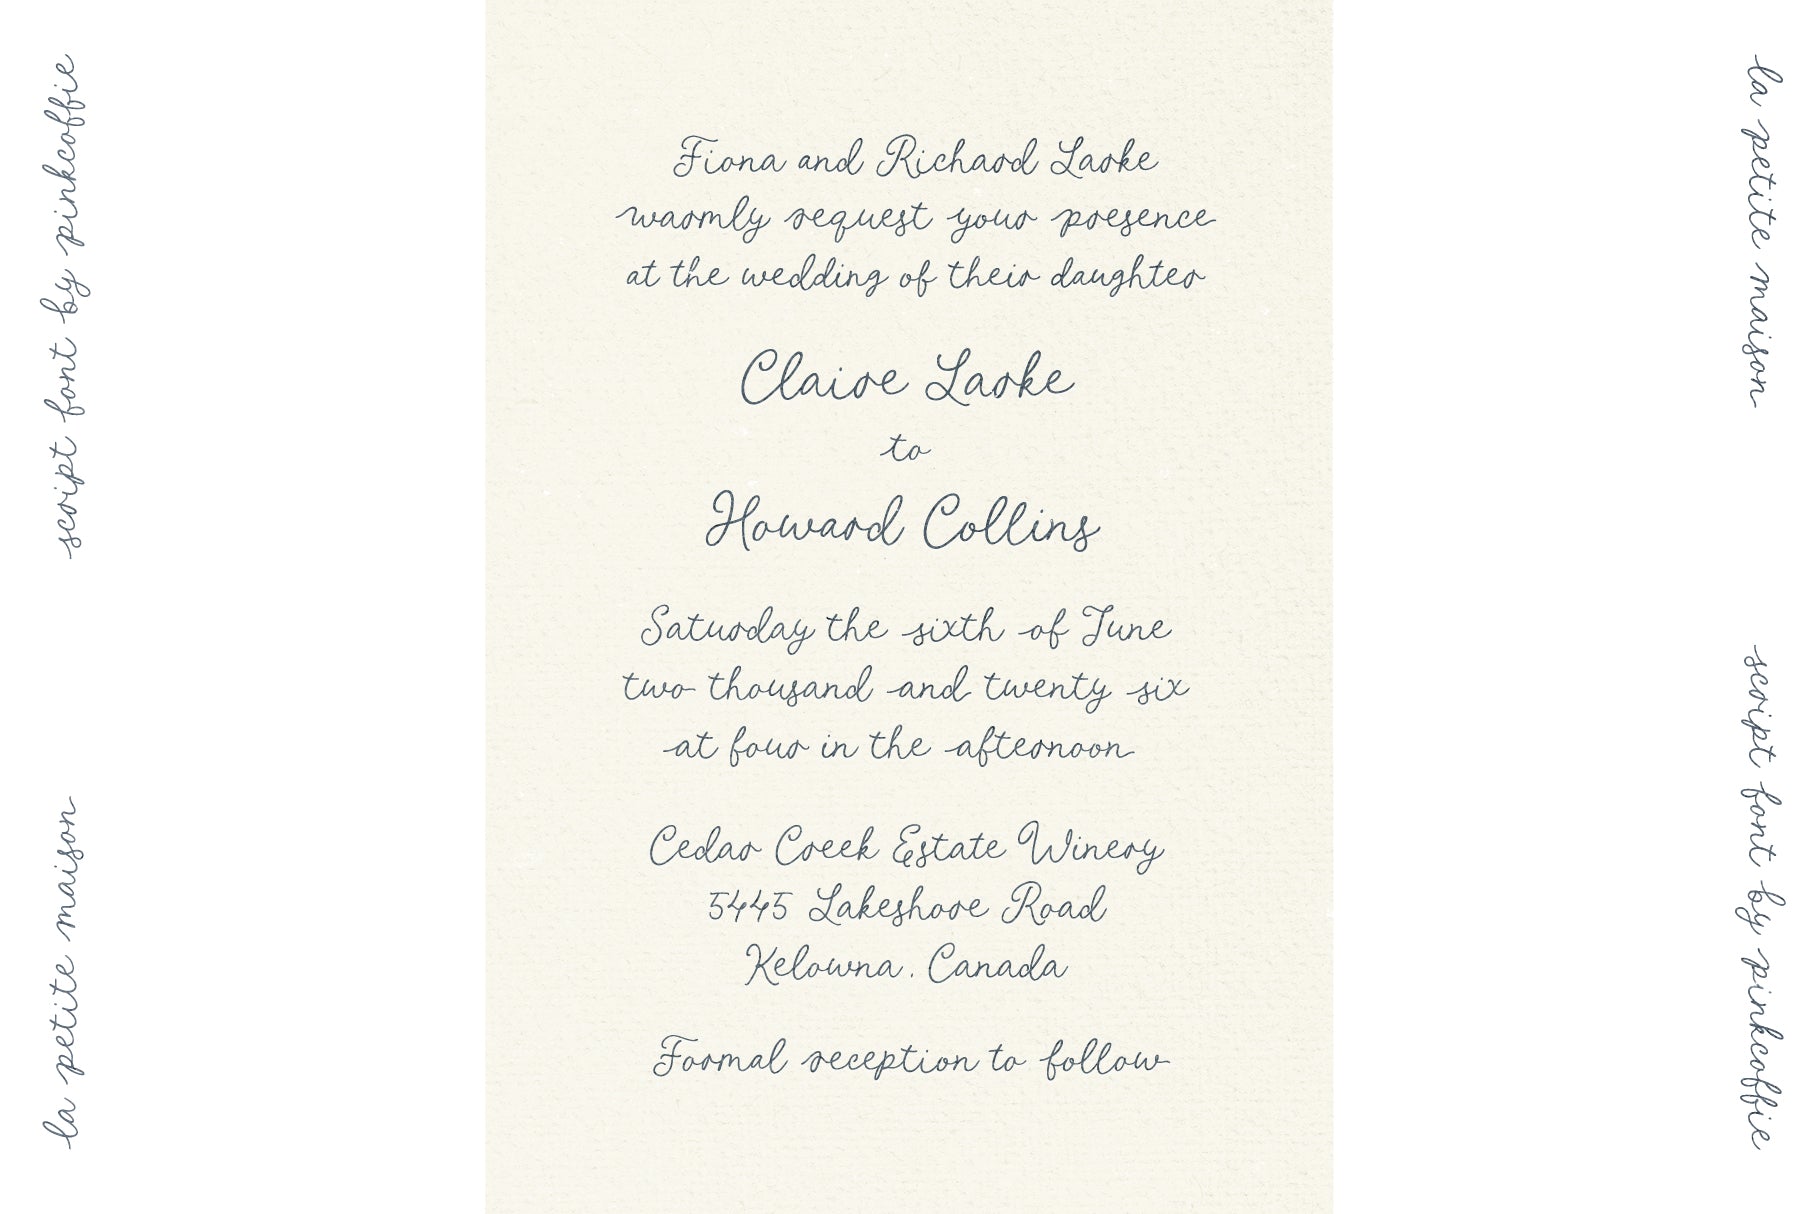 script font by pinkcoffie
la petite maison
Fiona and Richard Larke
warmly request your presence
at the wedding of their daughter
Claire Larke
to
Howard Collins
Saturday the sixth of June
two thousand and twenty six
at four in the afternoon
Cedar Creek Estate Winery
5445 Lakeshore Road
Kelowna . Canada
Formal reception to follow
la petite maison
script font by pinkcoffie